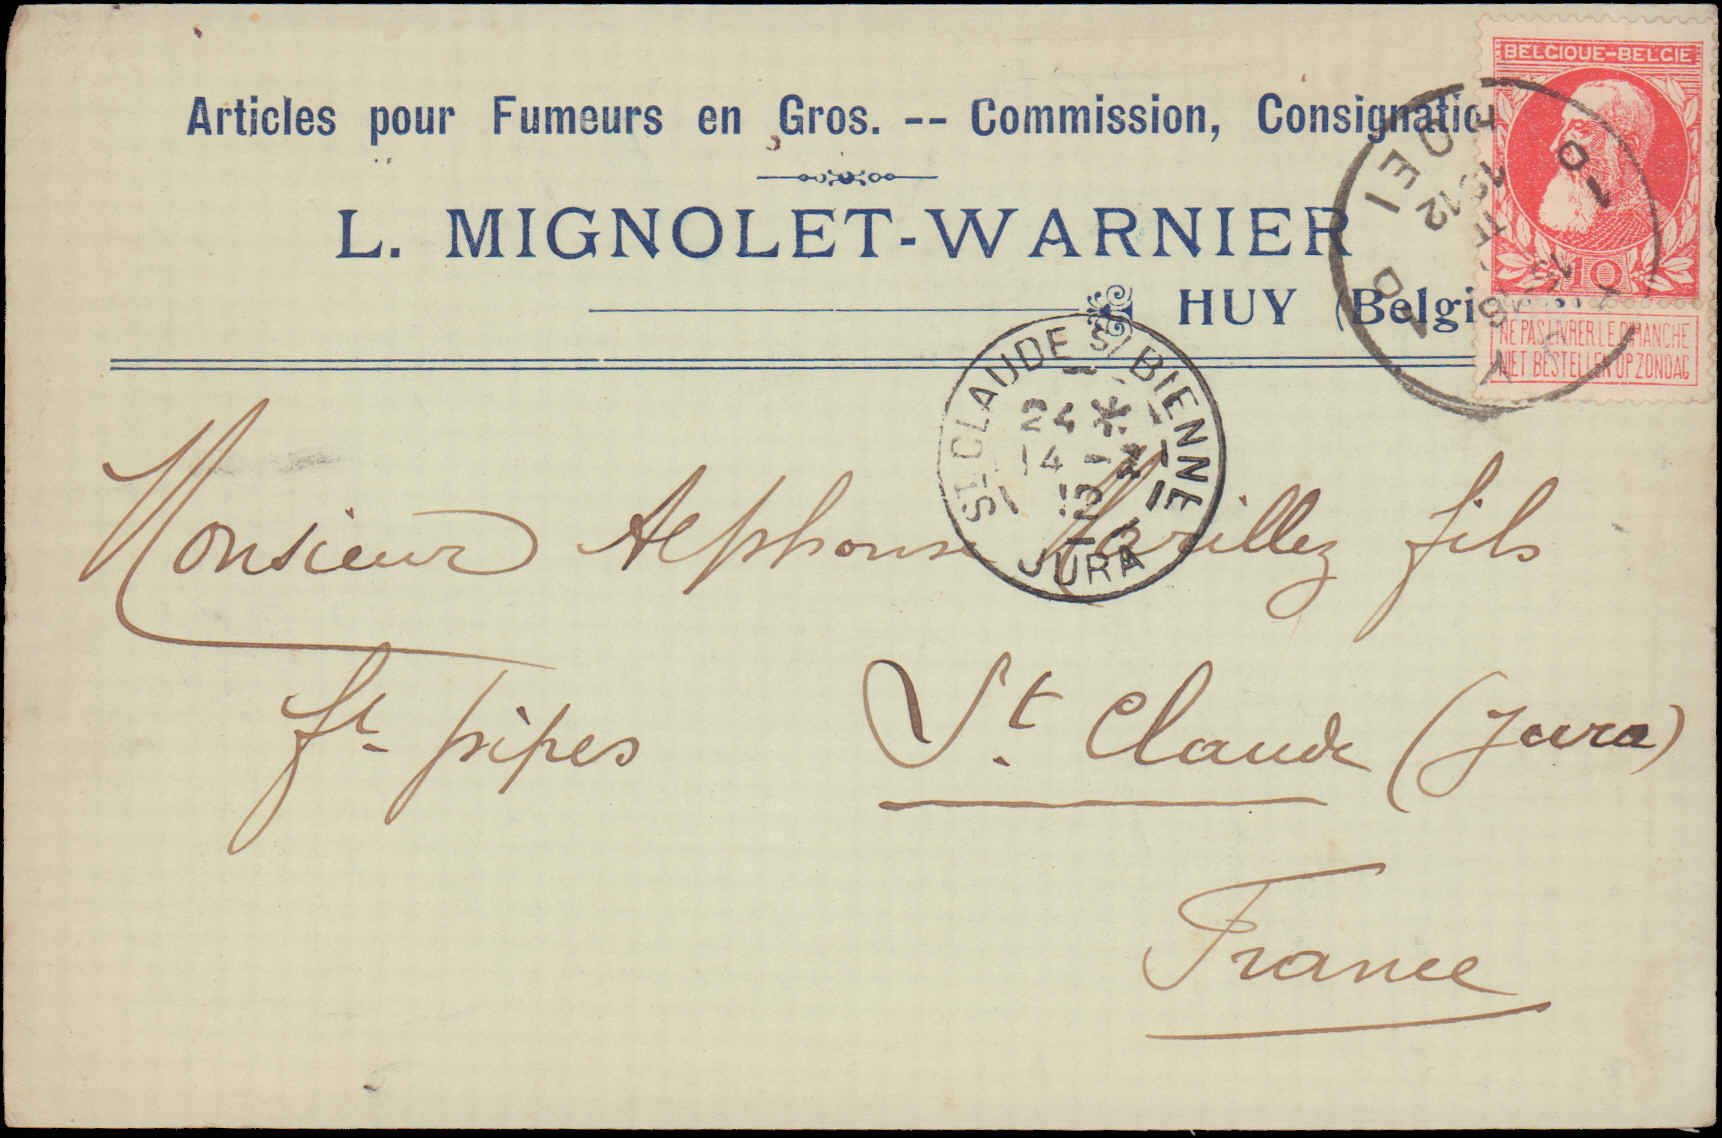 Articles pour Fumeurs en Gros. -- Commission, Consignatio
L. MIGNOLET-WARNIER
HUY (Belgi
BELGIQUE-BELGIE
10
NE PAS LIVRER LE DIMANCHE
NIET BESTELLEN OP ZONDAG
HOEI
1912
ST CLAUDE S/ BIENNE
24 *
14
12
JURA
Monsieur Alphonse fils
ft. pipes St. Claude (Jura)
France